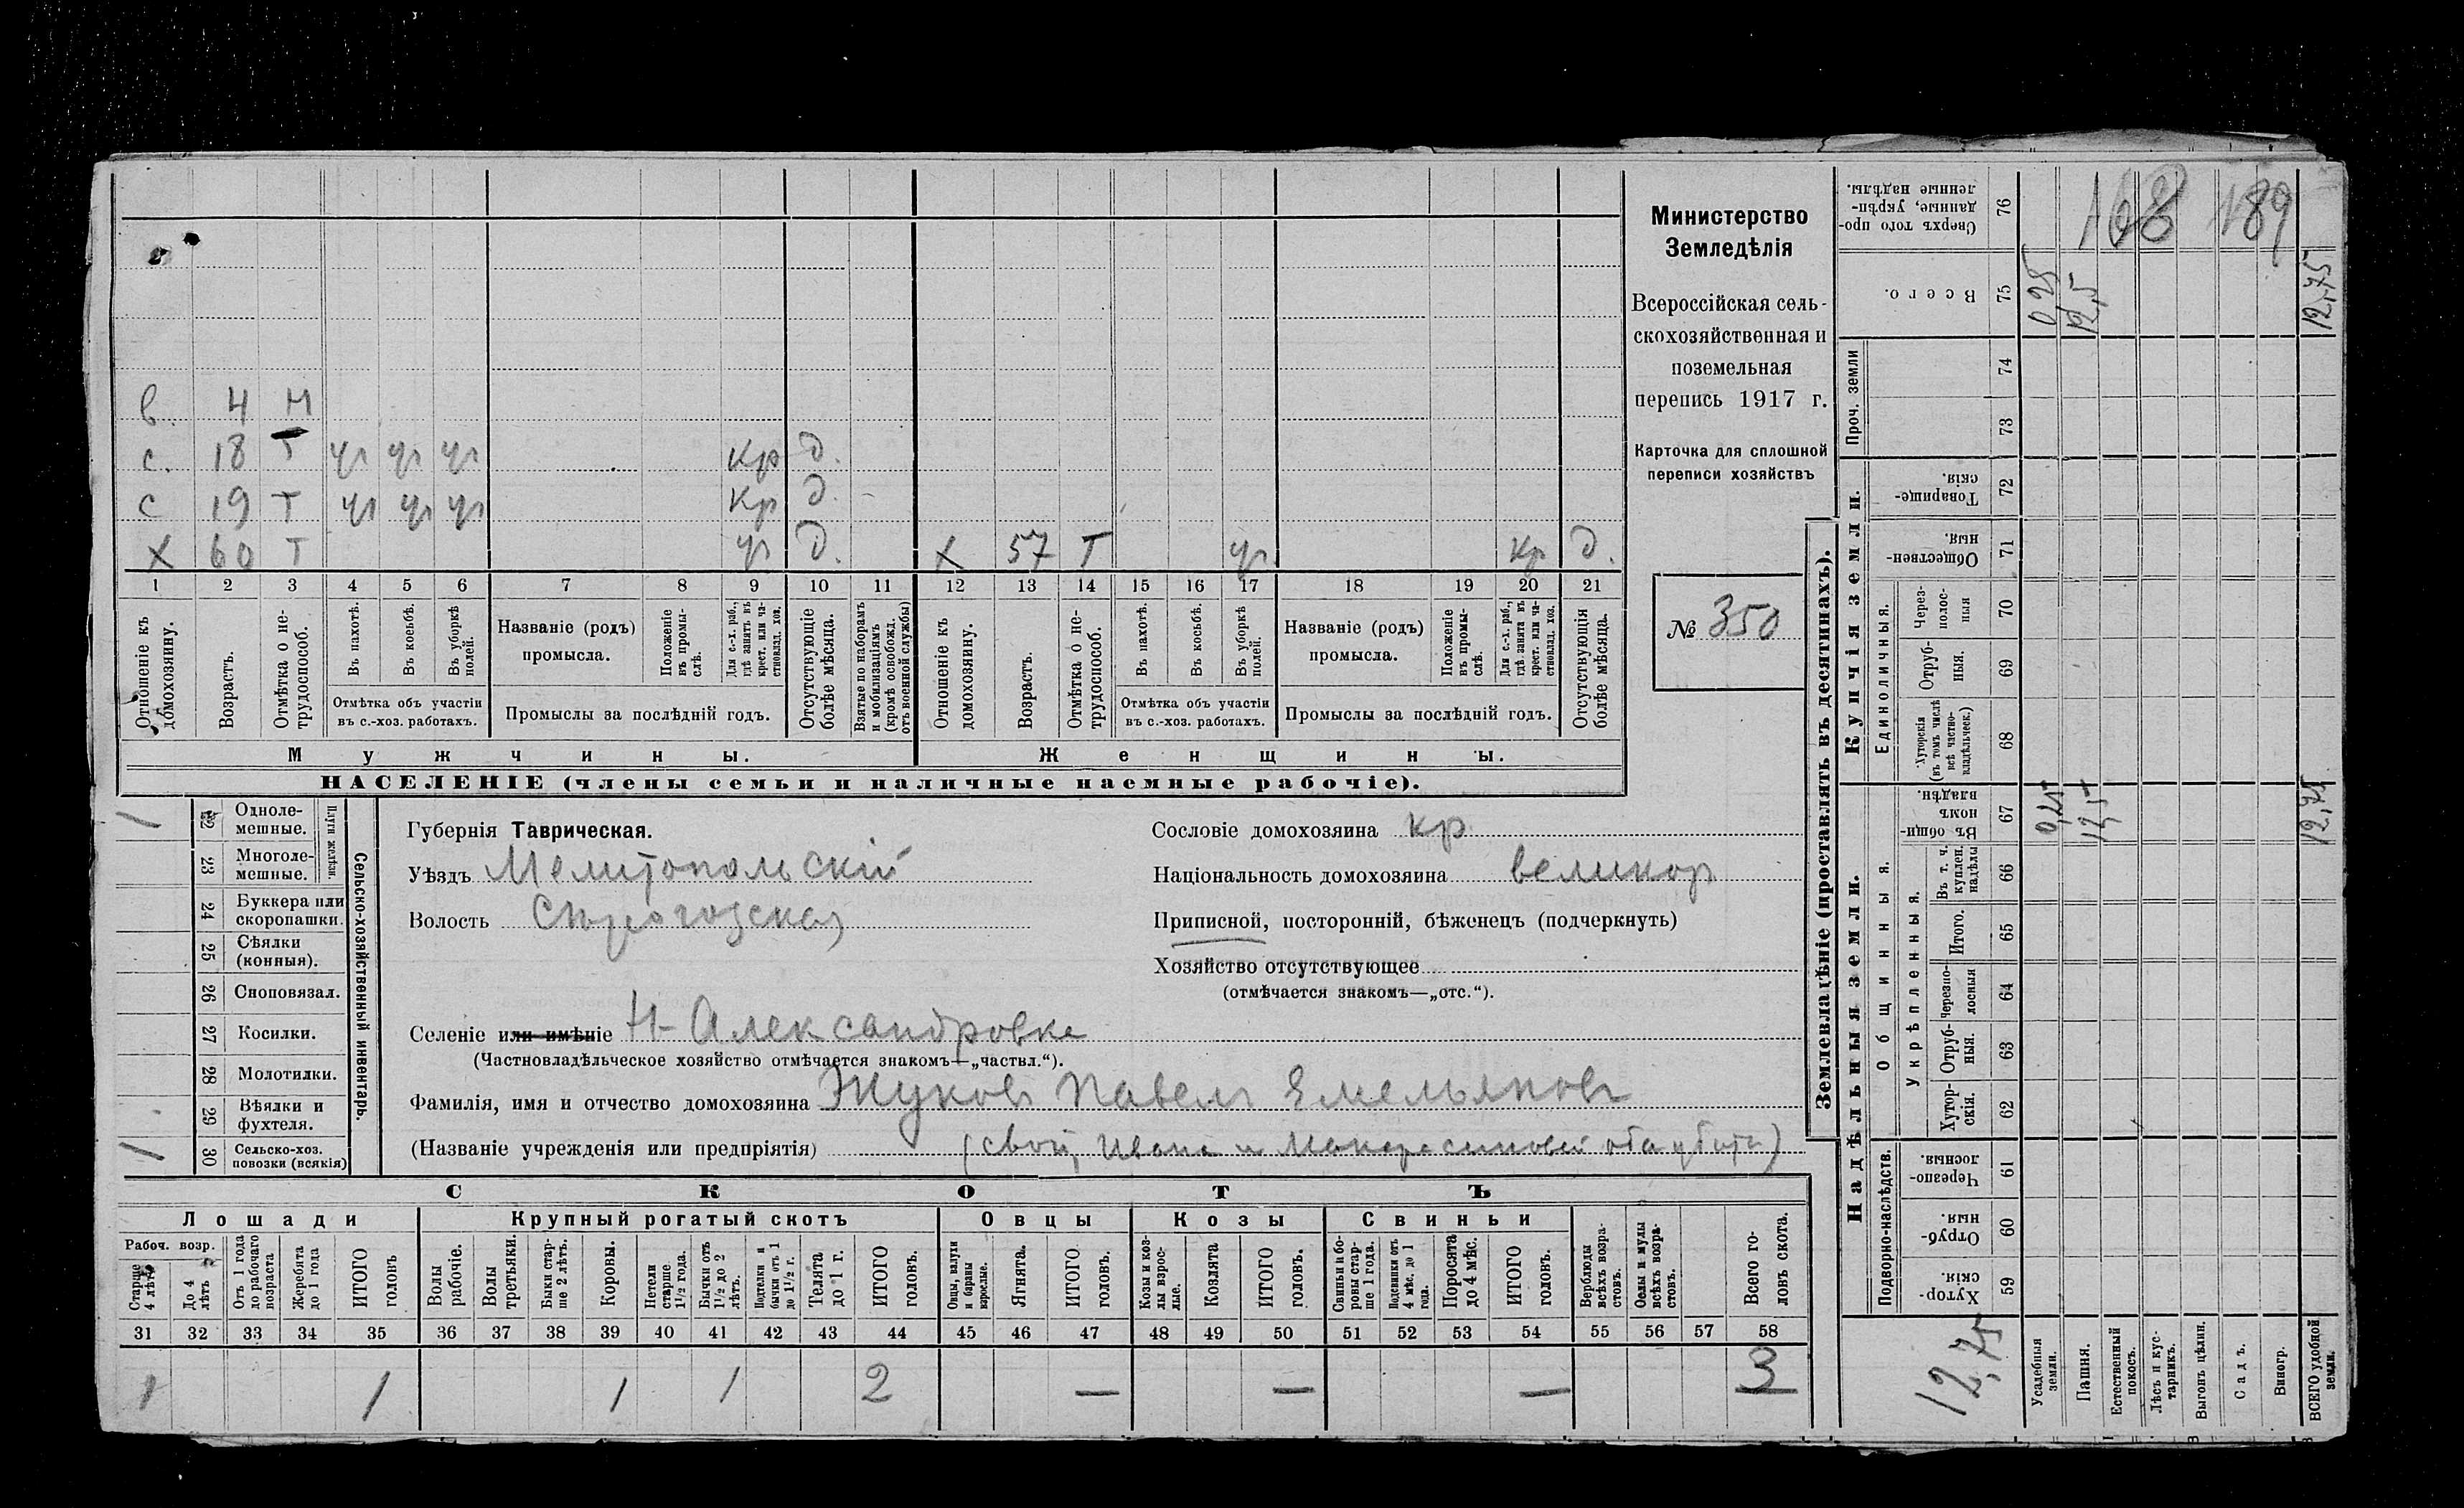 Министерство
Земледѣлія
Всероссійская сель-
скохозяйственная и
поземельная
перепись 1917 г.
Карточка для сплошной
переписи хозяйствъ
№ 350
в. 4 н
с. 18 т уч уч уч кр д.
с 19 т уч уч уч кр д.
х 60 т уч д. х 57 т уч кр д.
1 2 3 4 5 6 7 8 9 10 11 12 13 14 15 16 17 18 19 20 21
Отношеніе къ домохозяину.
Возрастъ.
Отмѣтка о не-трудоспособ.
Въ пахотѣ.
Въ косьбѣ.
Въ уборкѣ полей.
Отмѣтка объ участіи
въ с.-хоз. работахъ.
Названіе (родъ)
промысла.
Положеніе въ промы-слѣ.
Для с.-х. раб., гдѣ занятъ въ крест. или ча-стновлад. хоз.
Промыслы за послѣдній годъ.
Отсутствующіе болѣе мѣсяца.
Взятые по наборамъ и мобилизаціямъ (кромѣ освобожд. отъ военной службы)
Отношеніе къ домохозяину.
Возрастъ.
Отмѣтка о не-трудоспособ.
Въ пахотѣ.
Въ косьбѣ.
Въ уборкѣ полей.
Отмѣтка объ участіи
въ с.-хоз. работахъ.
Названіе (родъ)
промысла.
Положеніе въ промы-слѣ.
Для с.-х. раб., гдѣ занята въ крест. или ча-стновлад. хоз.
Промыслы за послѣдній годъ.
Отсутствующія болѣе мѣсяца.
Мужчины. Женщины.
НАСЕЛЕНІЕ (члены семьи и наличные наемные рабочіе).
Сельско-хозяйственный инвентарь.
Плуги желѣзн.
1 22 Одноле-мешные.
23 Многоле-мешные.
24 Буккера или скоропашки.
25 Сѣялки (конныя).
26 Сноповязал.
27 Косилки.
28 Молотилки.
29 Вѣялки и фухтеля.
1 30 Сельско-хоз. повозки (всякія)
Губернія Таврическая.
Уѣздъ Мелитопольскій
Волость
Селеніе или имѣніе Н-Александровка
(Частновладѣльческое хозяйство отмѣчается знакомъ—„частвл.“).
Фамилія, имя и отчество домохозяина Жуковъ Павелъ Емельяновъ
(Названіе учрежденія или предпріятія) (свой, Ивана и Макара сыновей оба убиты)
Сословіе домохозяина кр
Національность домохозяина великор
Приписной, посторонній, бѣженецъ (подчеркнуть)
Хозяйство отсутствующее
(отмѣчается знакомъ—„отс.“).
СКОТЪ
Лошади Крупный рогатый скотъ Овцы Козы Свиньи
Рабоч. возр.
Старше 4 лѣтъ
До 4 лѣтъ
Отъ 1 года до рабочаго возраста
Жеребята до 1 года
ИТОГО головъ
Волы рабочіе.
Волы третьяки.
Быки стар-ше 2 лѣтъ.
Коровы.
Нетели старше 1½ года.
Бычки отъ 1½ до 2 лѣтъ.
Подтелки и бычки отъ 1 до 1½ г.
Телята до 1 г.
ИТОГО головъ.
Овцы, валухи и бараны взрослые.
Ягнята.
ИТОГО головъ.
Козы и коз-лы взрос-лые.
Козлята
ИТОГО головъ.
Свиньи и бо-ровы стар-ше 1 года.
Подсвинки отъ 4 мѣс. до 1 года.
Поросята до 4 мѣс.
ИТОГО головъ.
Верблюды всѣхъ возра-стовъ.
Ослы и мулы всѣхъ возра-стовъ.
Всего го-ловъ скота.
31 32 33 34 35 36 37 38 39 40 41 42 43 44 45 46 47 48 49 50 51 52 53 54 55 56 57 58
1 1 1 1 2 — — — 3
Землевладѣніе (проставлять въ десятинахъ).
Надѣльныя земли. Купчія земли. Проч. земли
Подворно-наслѣдств. Общинныя. Укрѣпленныя. Единоличныя.
59 Хутор-скія.
60 Отруб-ныя.
61 Черезпо-лосныя.
62 Хутор-скія.
63 Отруб-ныя.
64 Черезпо-лосныя
65 Итого.
66 Въ т. ч. куплен. надѣлы
67 Въ общи-номъ владѣн. 0,25 12,5 12,75
68 Хуторскія (въ томъ числѣ всѣ частно-владѣльческ.)
69 Отруб-ныя.
70 Через-полос-ныя
71 Обществен-ныя.
72 Товарище-скія.
73
74
75 Всего. 0,25 12,5 12,75
76 Сверхъ того про-данные, укрѣп-ленные надѣлы.
168 189
12,75
Усадебныя земли.
Пашня.
Естественный покосъ.
Лѣсъ и кус-тарникъ.
Выгонъ цѣлин.
Садъ.
Виногр.
ВСЕГО удобной земли.